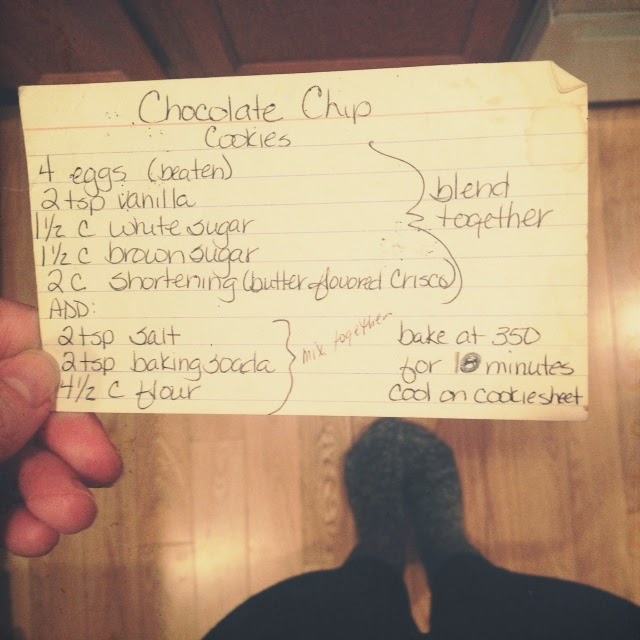 Chocolate Chip
Cookies
4 eggs (beaten)
2 tsp vanilla
1½ c white sugar
1½ c brown sugar
2 C shortening (butter flavored Crisco)
blend
together
ADD:
2 tsp salt
2 tsp baking soada
4½ c flour
mix together
bake at 350
for minutes
cool on cookie sheet